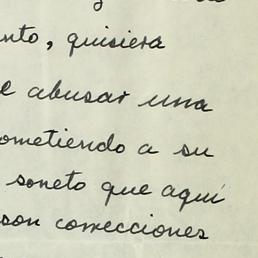 nto, quisiera
e abusar una
ometiendo a su
soneto que aquí
son correcciones